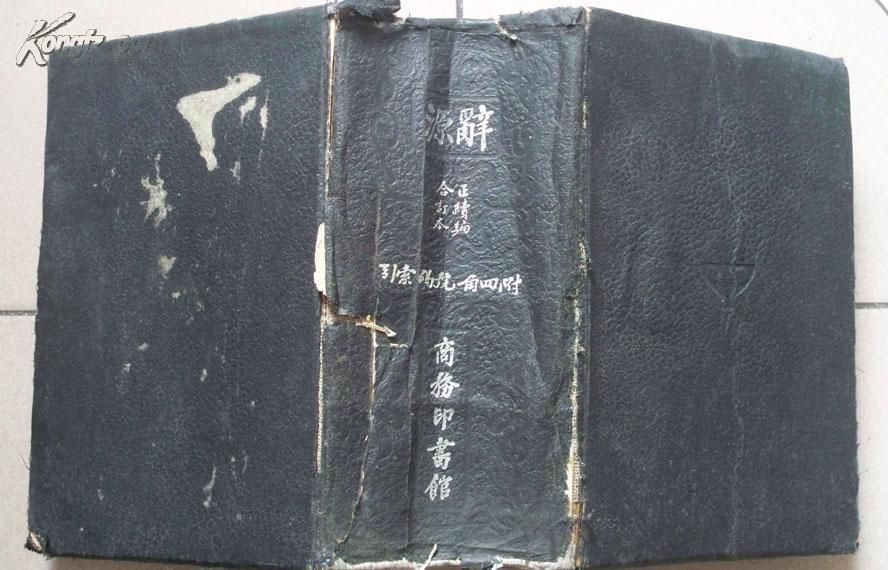 Kongfz.com
辭源
正續編
合訂本
附四角號碼索引
商務印書館